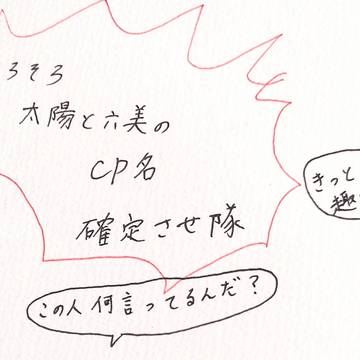 ろそろ
太陽と六美の
CP名
確定させ隊
きっと
趣
この人 何言ってるんだ?